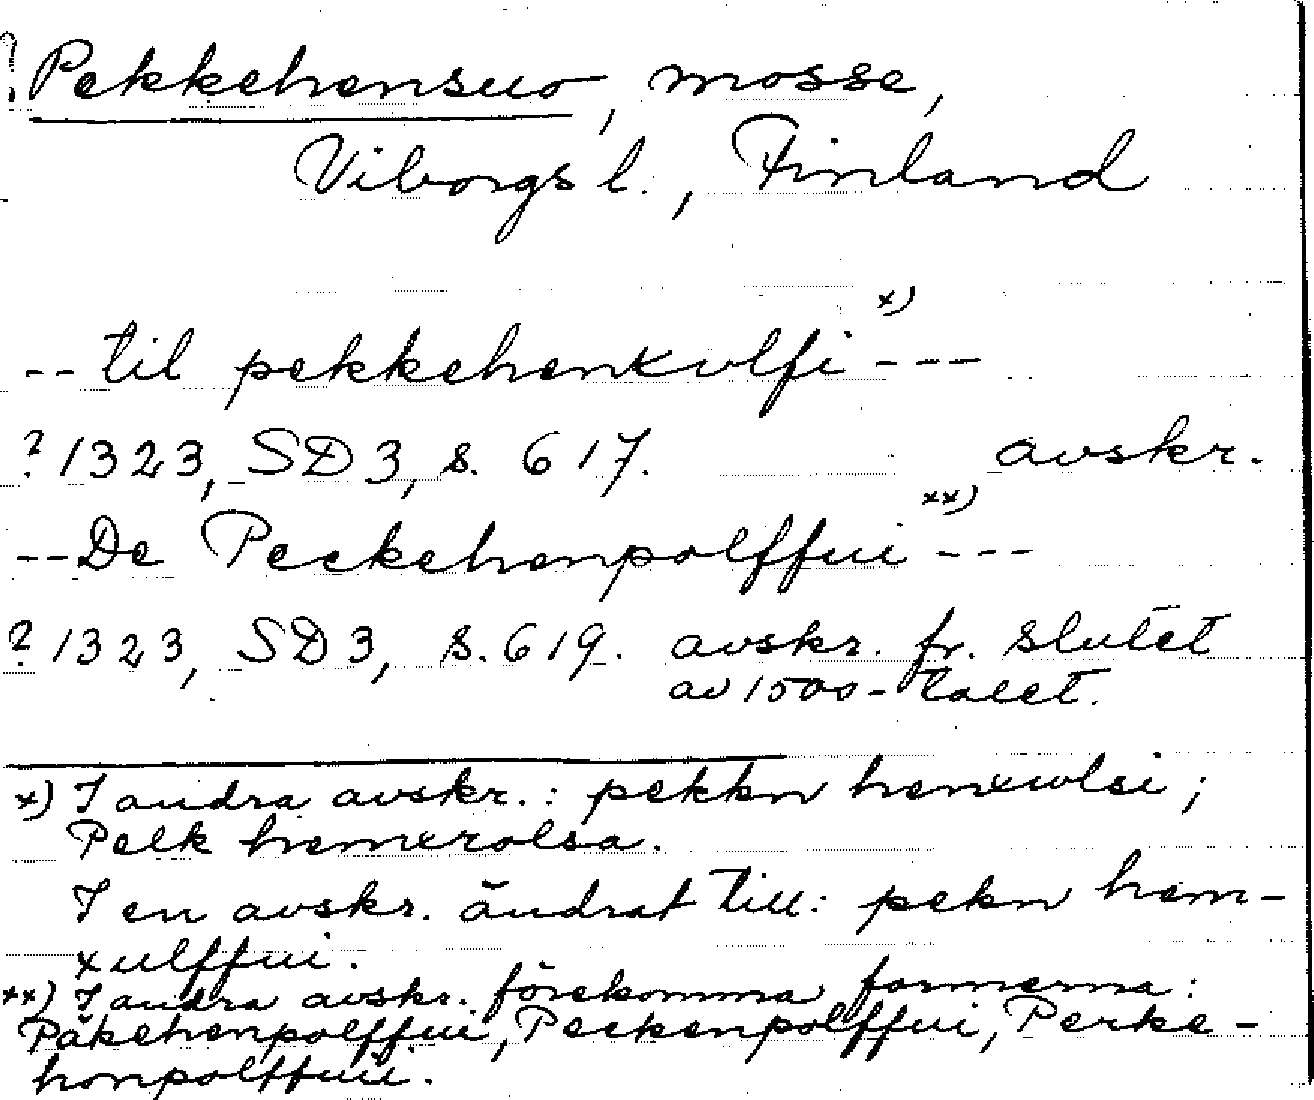 ? Pekkehensuo, mosse,
Viborgs l., Finland
-- til pekkehenxvlfi x) ---
? 1323, SD 3, s. 617. avskr.
-- De Peckehenpolffui xx) ---
? 1323, SD 3, s. 619. avskr. fr. slutet
av 1500-talet.
x) I andra avskr.: pekkn henxwlsi;
Pelk hemxrolsa.
I en avskr. ändrat till: pekn hem-
xulffui.
xx) I andra avskr. förekomma formerna:
Päkehenpolffui, Peckenpolffui, Perke-
honpolffuii.